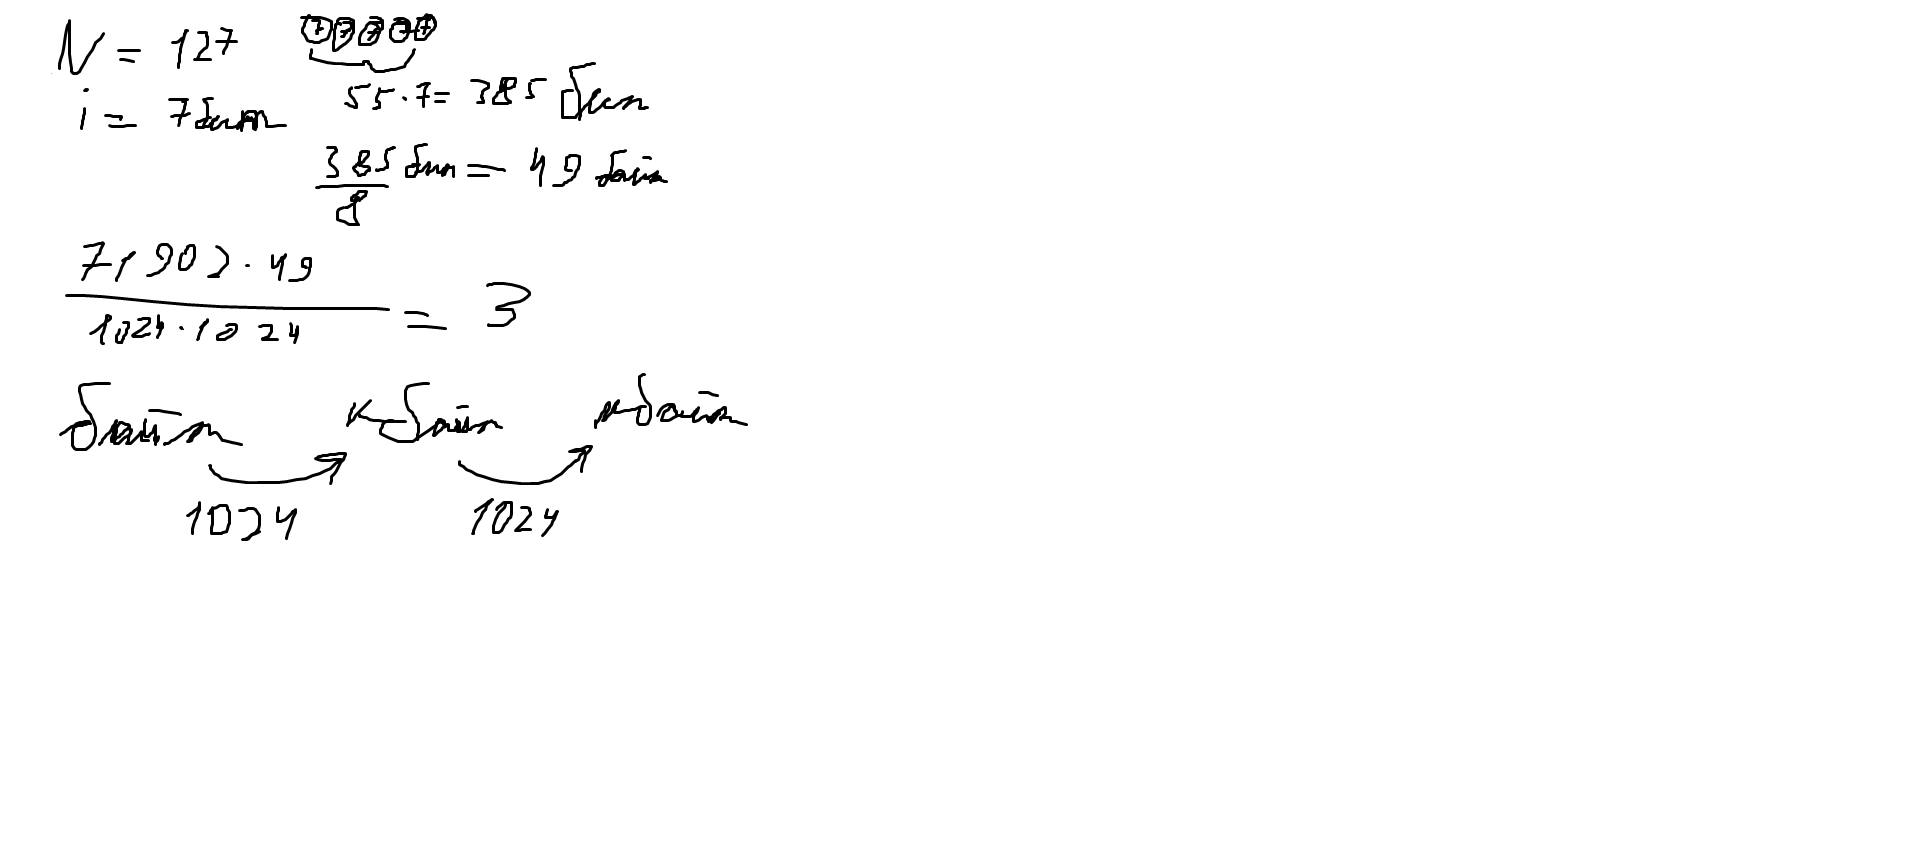 N = 127
7 7 7 7 7
i = 7 бит
55 · 7 = 385 бит
385 бит / 8 = 49 байт
71902 · 49 / 1024 · 1024 = 3
байт кбайт мбайт
1024 1024